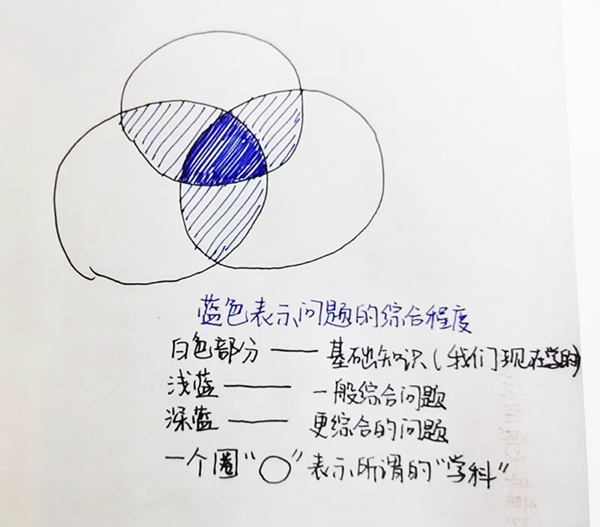 蓝色表示问题的综合程度
白色部分 —— 基础知识(我们现在学的)
浅蓝 —— 一般综合问题
深蓝 —— 更综合的问题
一个圈“○”表示所谓的“学科”